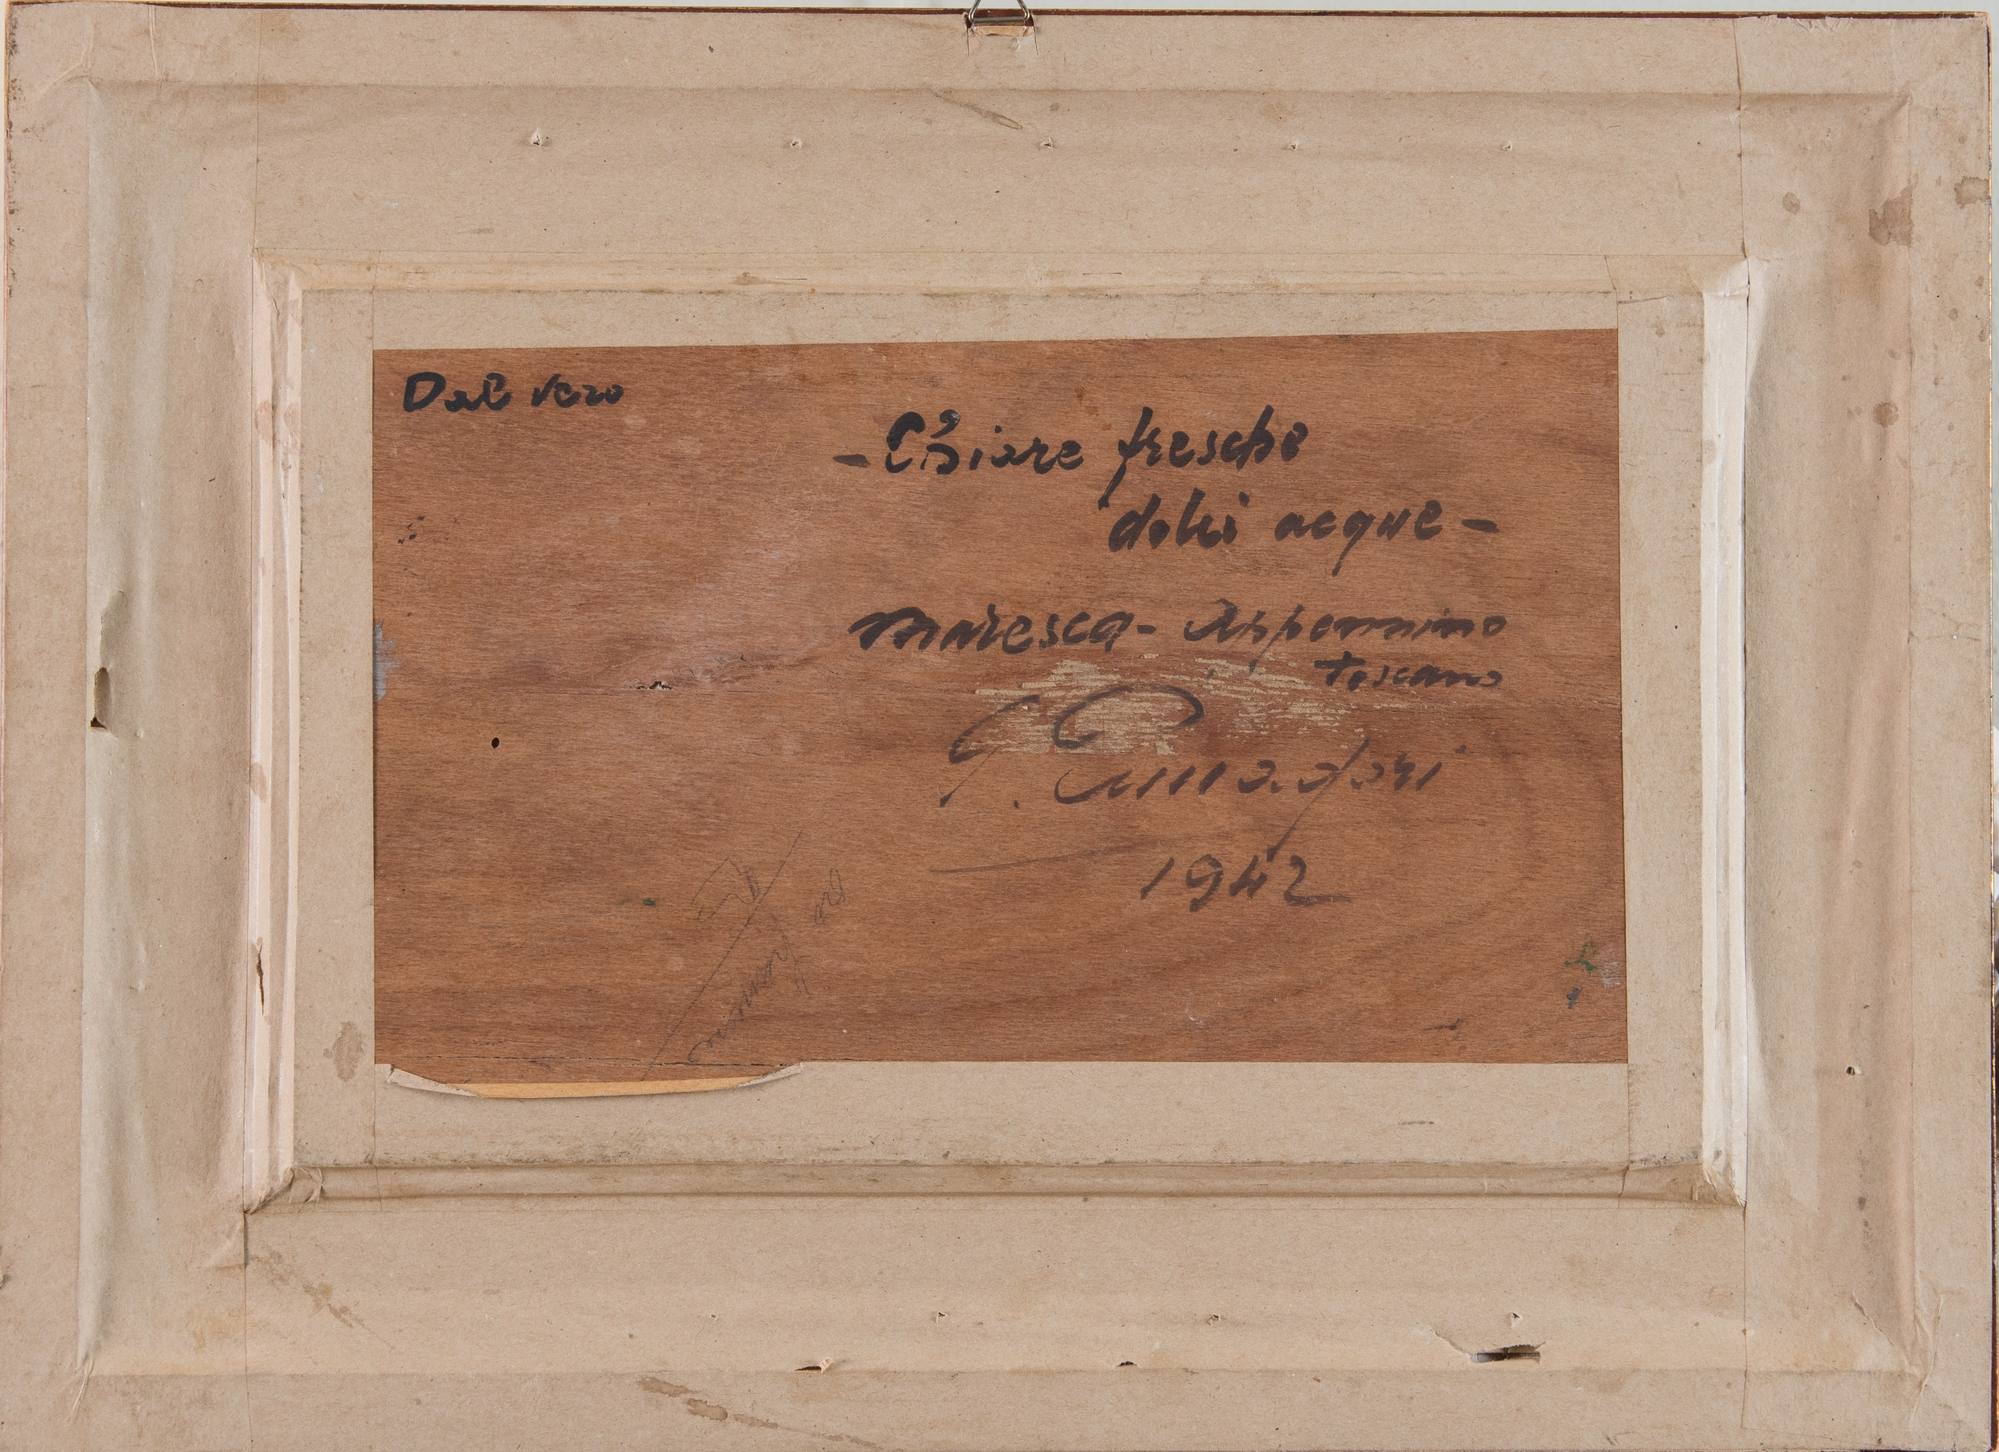 Dal vero
- Chiare fresche
dolci acque -
Maresca - Appennino
Toscano
G.
1942